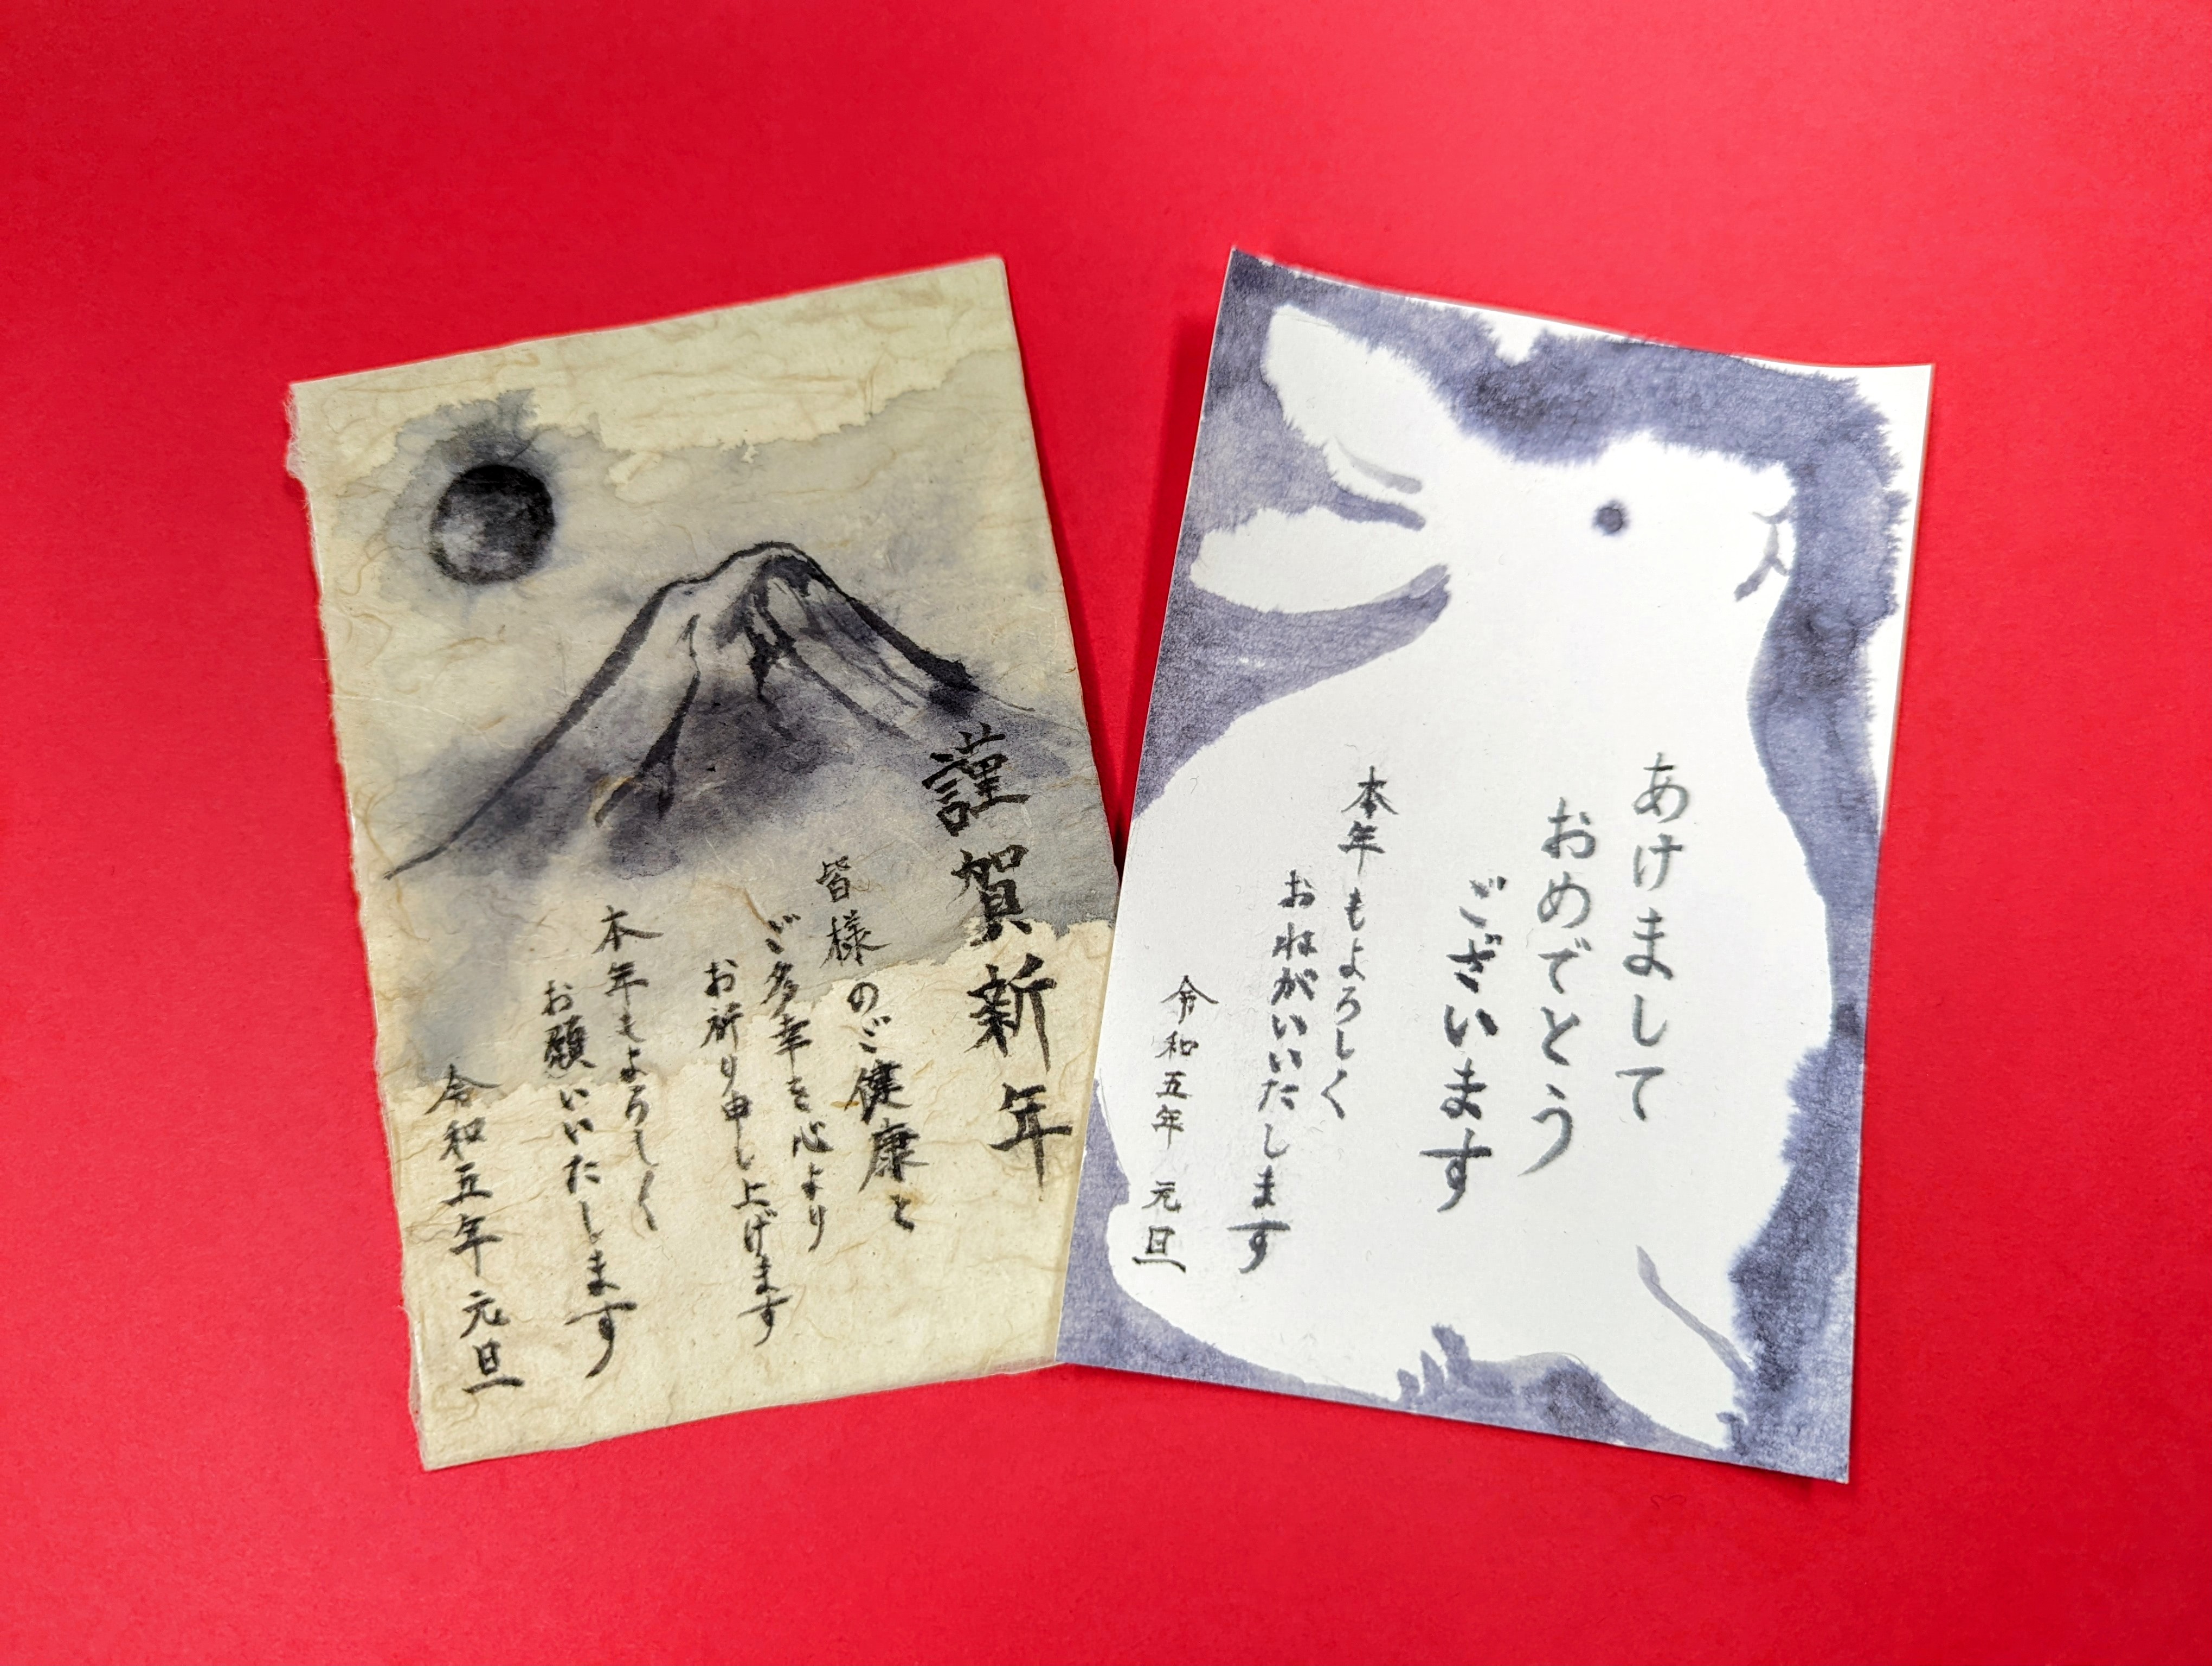 謹賀新年
皆様のご健康と
ご多幸を心より
お祈り申し上げます
本年もよろしく
お願いいたします
令和五年 元旦
あけまして
おめでとう
ございます
本年もよろしく
おねがいいたします
令和五年 元旦